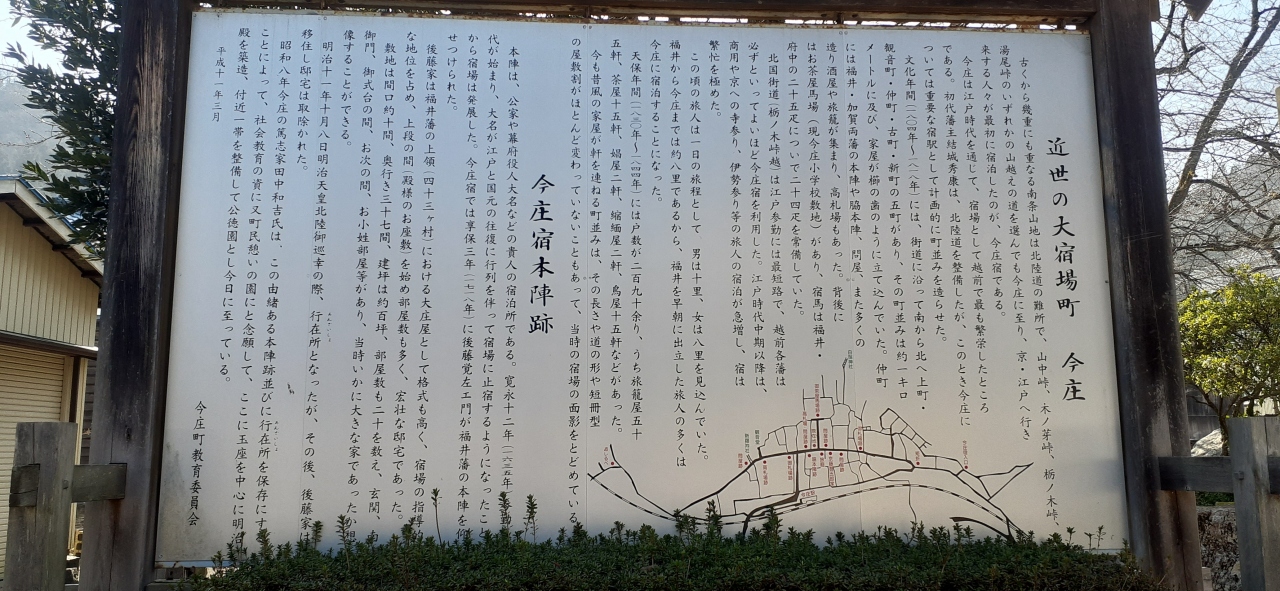 近世の大宿場町　今庄
古くから幾重にも重なる南条山地は北陸道の難所で、山中峠、木ノ芽峠、栃ノ木峠、
湯尾峠のいずれかの山越えの道を選んでも今庄に至り、京・江戸へ行き
来する人々が最初に宿泊したのが、今庄宿である。
今庄は江戸時代を通じて、宿場として越前で最も繁栄したところ
である。初代藩主結城秀康は、北陸道を整備したが、このとき今庄に
ついては重要な宿駅として計画的に町並みを造らせた。
文化年間（一八〇四年〜一八一八年）には、街道に沿って南から北へ上町・
観音町・仲町・古町・新町の五町があり、その町並みは約一キロ
メートルに及び、家屋が櫛の歯のように立て込んでいた。仲町
には福井・加賀両藩の本陣や脇本陣、問屋、また多くの
造り酒屋や旅籠が集まり、高札場もあった。背後に
はお茶屋馬場（現今庄小学校敷地）があり、宿馬は福井・
府中の二十五疋について二十四疋を常備していた。
北国街道（栃ノ木峠越）は江戸参勤には最短路で、越前各藩は
必ずといってよいほど今庄宿を利用した。江戸時代中期以降は、
商用や京への寺参り、伊勢参り等の旅人の宿泊が急増し、宿は
繁忙を極めた。
この頃の旅人は一日の旅程として、男は十里、女は八里を見込んでいた。
福井から今庄までは約八里であるから、福井を早朝に出立した旅人の多くは
今庄に宿泊することになった。
天保年間（一八三〇年〜一八四四年）には戸数が二百九十余り、うち旅籠屋五十
五軒、茶屋十五軒、娼屋二軒、縮緬屋二軒、鳥屋十五軒などがあった。
今も昔風の家屋が軒を連ねる町並みは、その長さや道の形や短冊型
の屋敷割がほとんど変わっていないこともあって、当時の宿場の面影をとどめている
今庄宿本陣跡
本陣は、公家や幕府役人大名などの貴人の宿泊所である。寛永十二年（一六三五年
代が始まり、大名が江戸と国元の往復に行列を伴って宿場に止宿するようになったこ
から宿場は発展した。今庄宿では享保三年（一七一八年）に後藤覚左エ門が福井藩の本陣を
せつけられた。
後藤家は福井藩の上領（四十三ヶ村）における大庄屋として格式も高く、宿場の指導
な地位を占め、上段の間（殿様のお座敷）を始め部屋数も多く、宏壮な邸宅であった。
敷地は間口約十間、奥行き三十七間、建坪は約百坪、部屋数も二十を数え、玄関、
御門、御式台の間、お次の間、お小姓部屋等があり、当時いかに大きな家であったか
像することができる。
明治十一年十月八日明治天皇北陸御巡幸の際、行在所となったが、その後、後藤家
移住し邸宅は取除かれた。
昭和八年今庄の篤志家田中和吉氏は、この由緒ある本陣跡並びに行在所を保存にす
ことによって、社会教育の資に又町民憩いの園にと念願して、ここに玉座を中心に明
殿を築造、付近一帯を整備して公徳園とし今日に至っている。
平成十一年三月
今庄町教育委員会